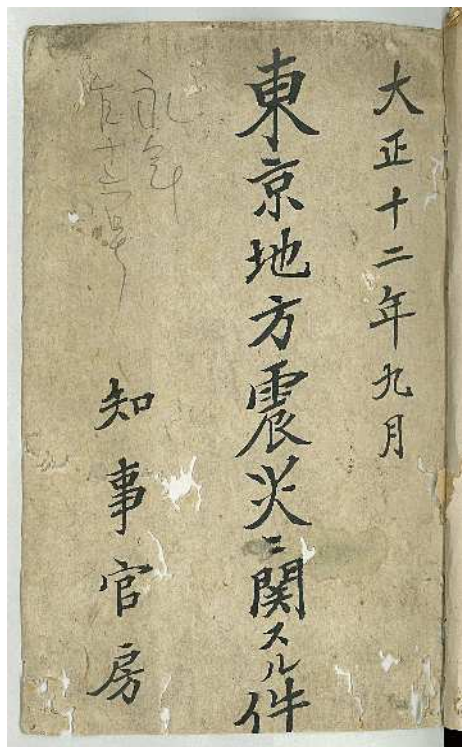 大正十二年九月
東京地方震災ニ関スル件
知事官房
永年